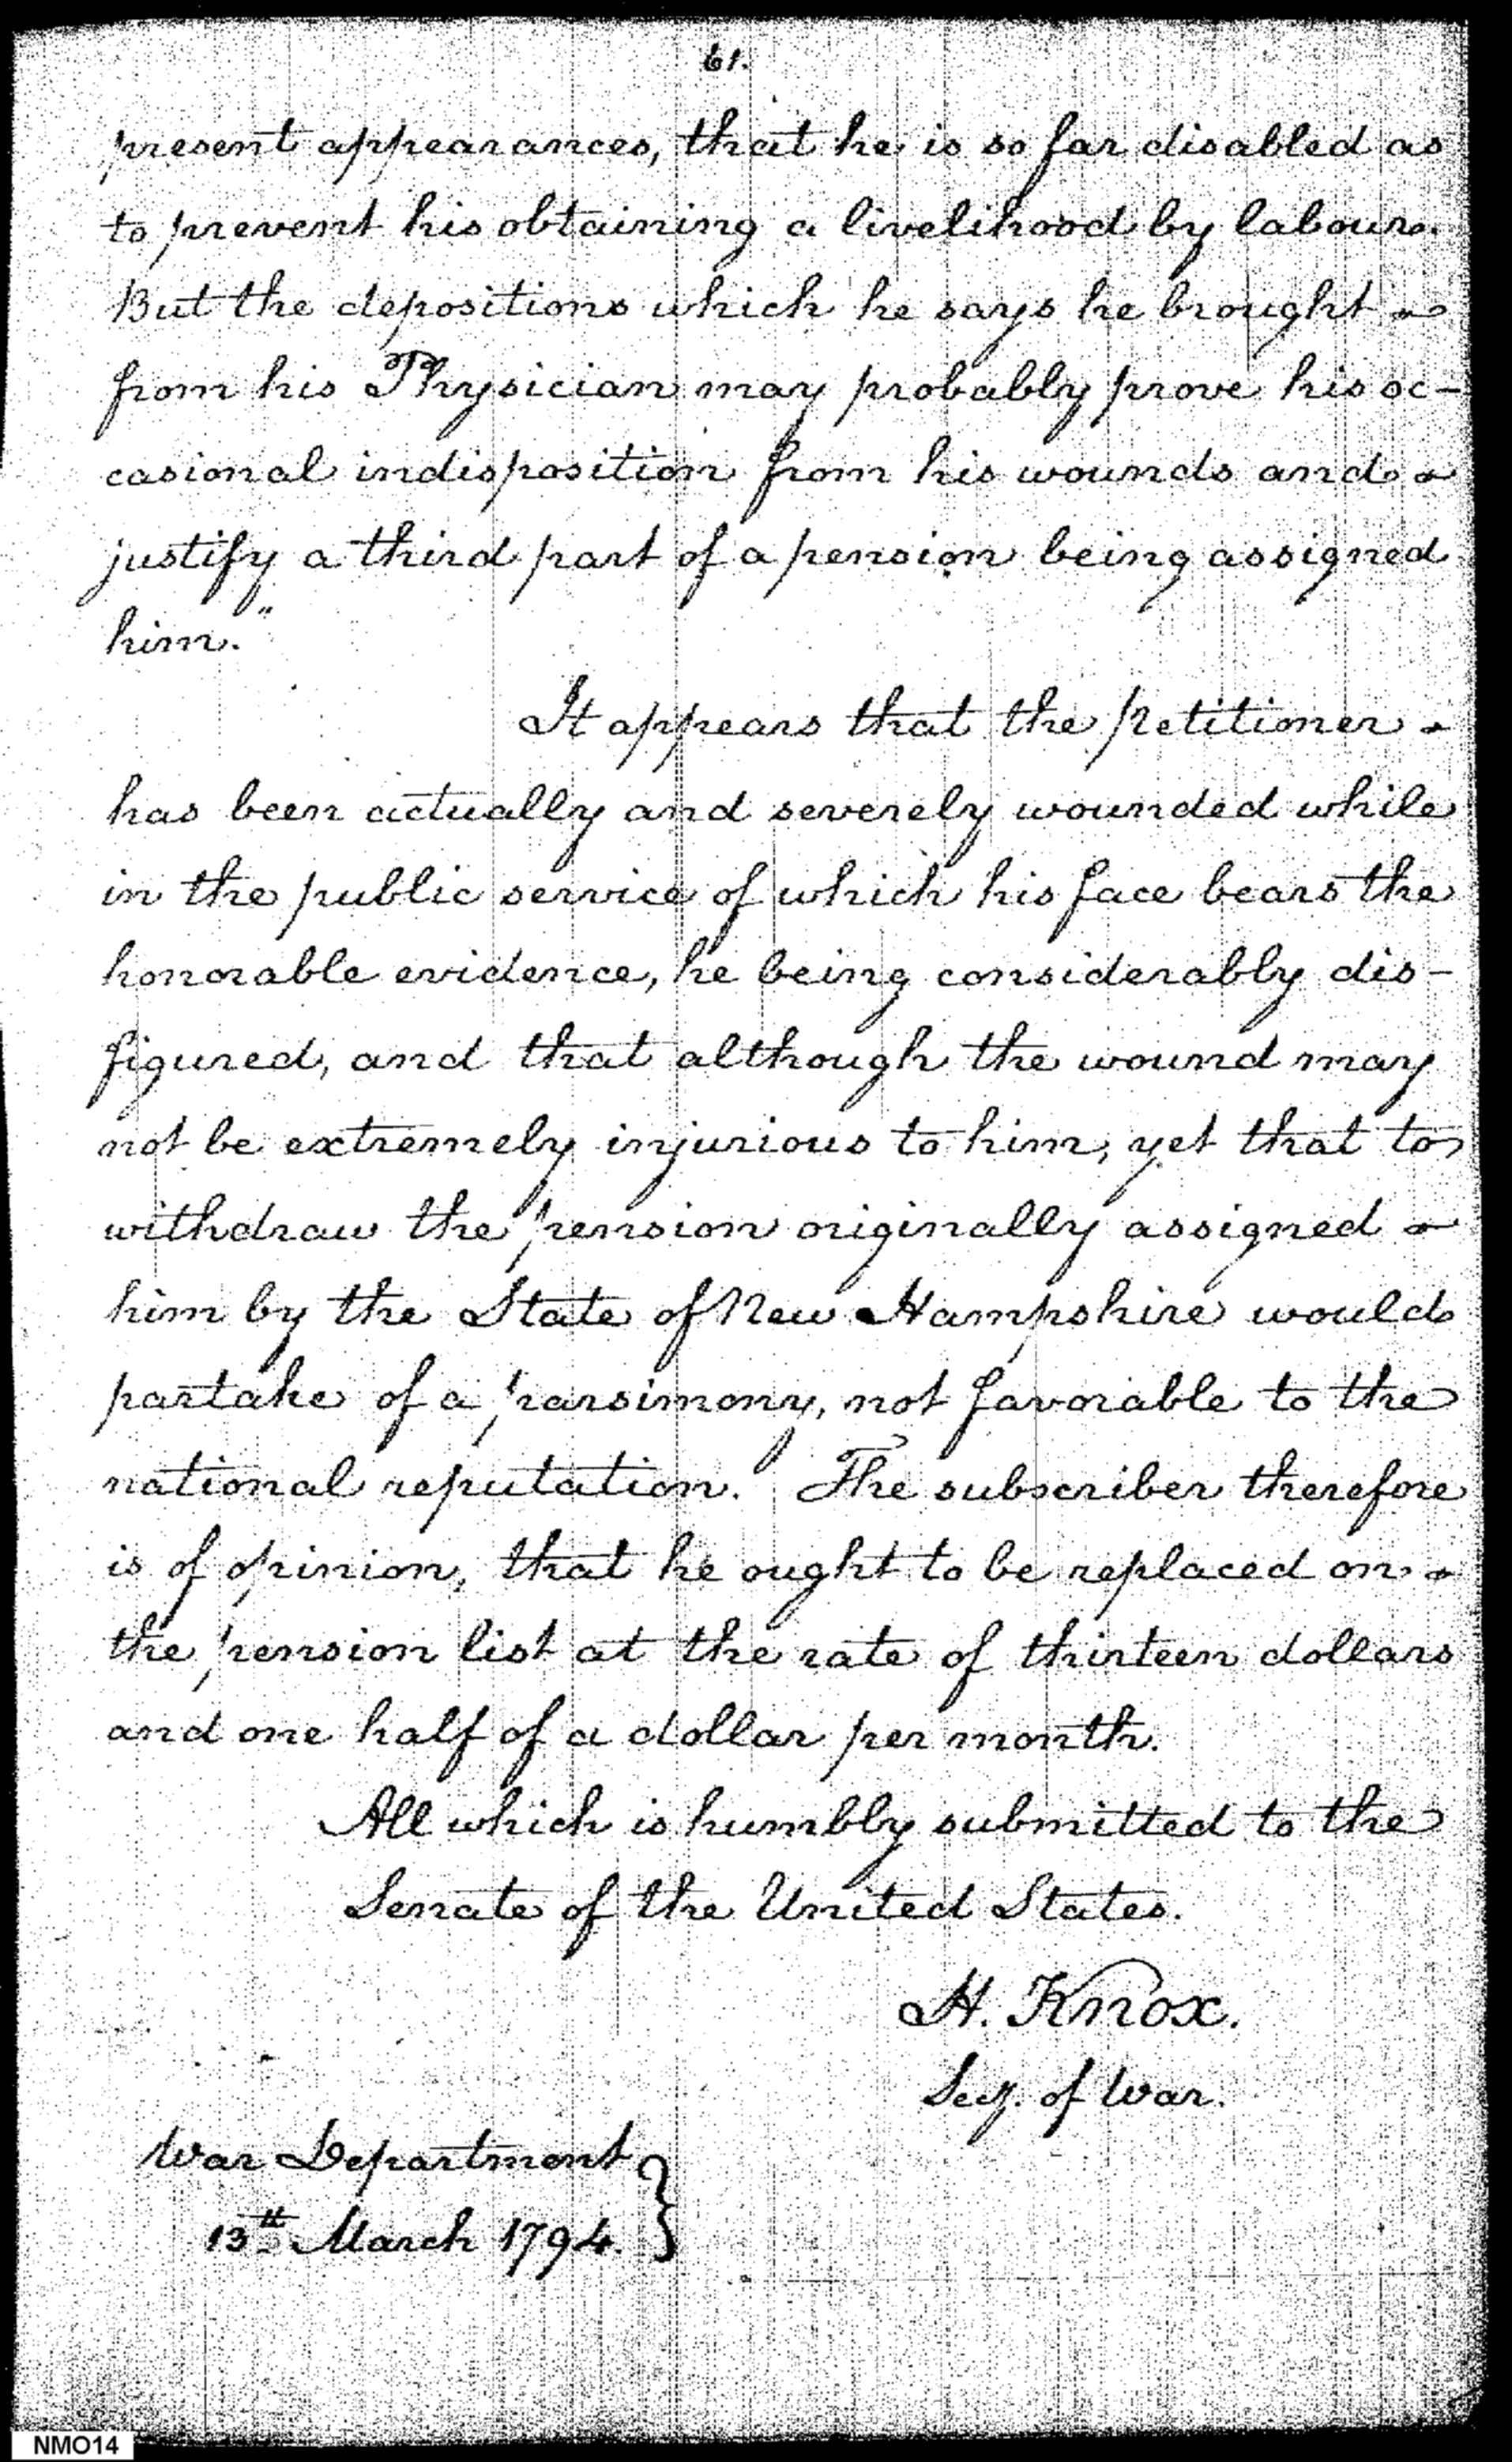 61.
present appearances, that he is so far disabled as
to prevent his obtaining a livelihood by labour.
But the depositions which he says he brought
from his Physician may probably prove his oc-
casional indisposition from his wounds and
justify a third part of a pension being assigned
him."
It appears that the petitioner
has been actually and severely wounded while
in the public service of which his face bears the
honorable evidence, he being considerably dis-
figured, and that although the wound may
not be extremely injurious to him, yet that to
withdraw the pension originally assigned
him by the State of New Hampshire would
partake of a parsimony, not favorable to the
national reputation. The subscriber therefore
is of opinion, that he ought to be replaced on
the pension list at the rate of thirteen dollars
and one half of a dollar per month.
All which is humbly submitted to the
Senate of the United States.
H. Knox.
Secy. of War.
War Department
13th March 1794.
NMO14